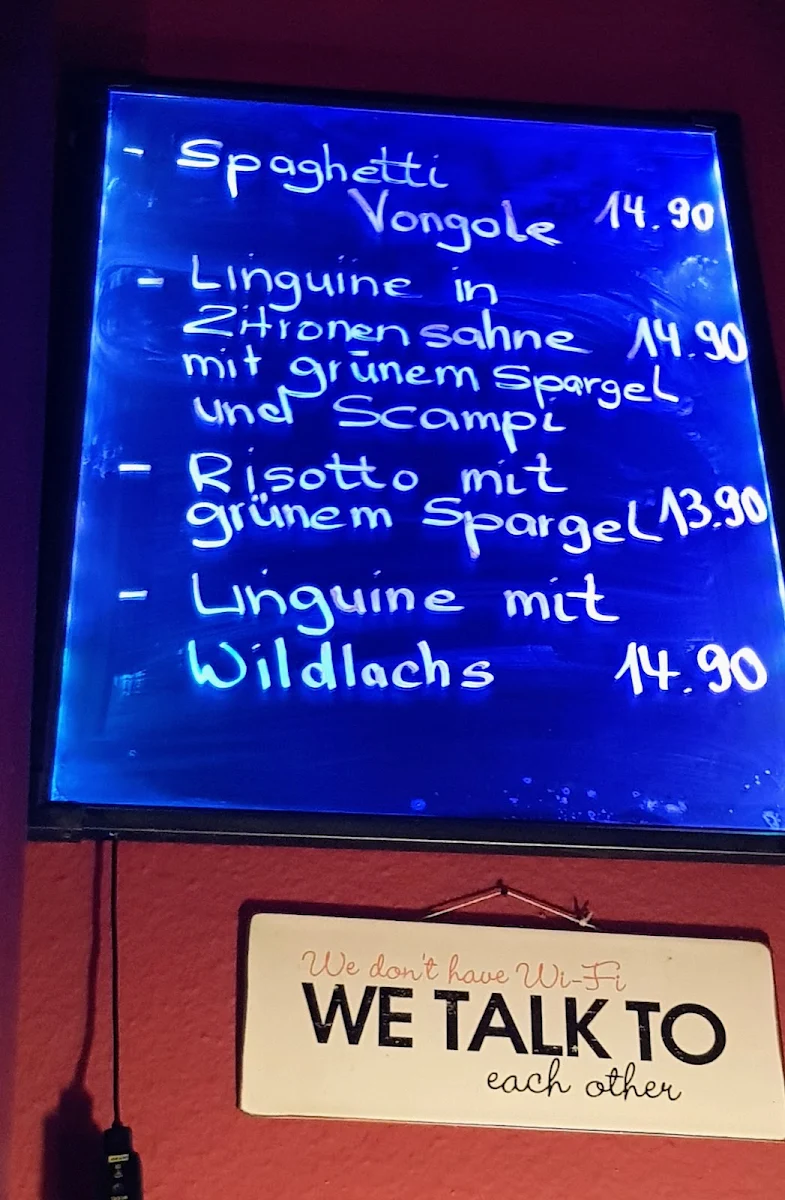 - Spaghetti
Vongole 14.90
- Linguine in
Zitronensahne 14.90
mit grünem Spargel
und Scampi
- Risotto mit
grünem Spargel 13.90
- Linguine mit
Wildlachs 14.90
We don't have Wi-Fi
WE TALK TO
each other